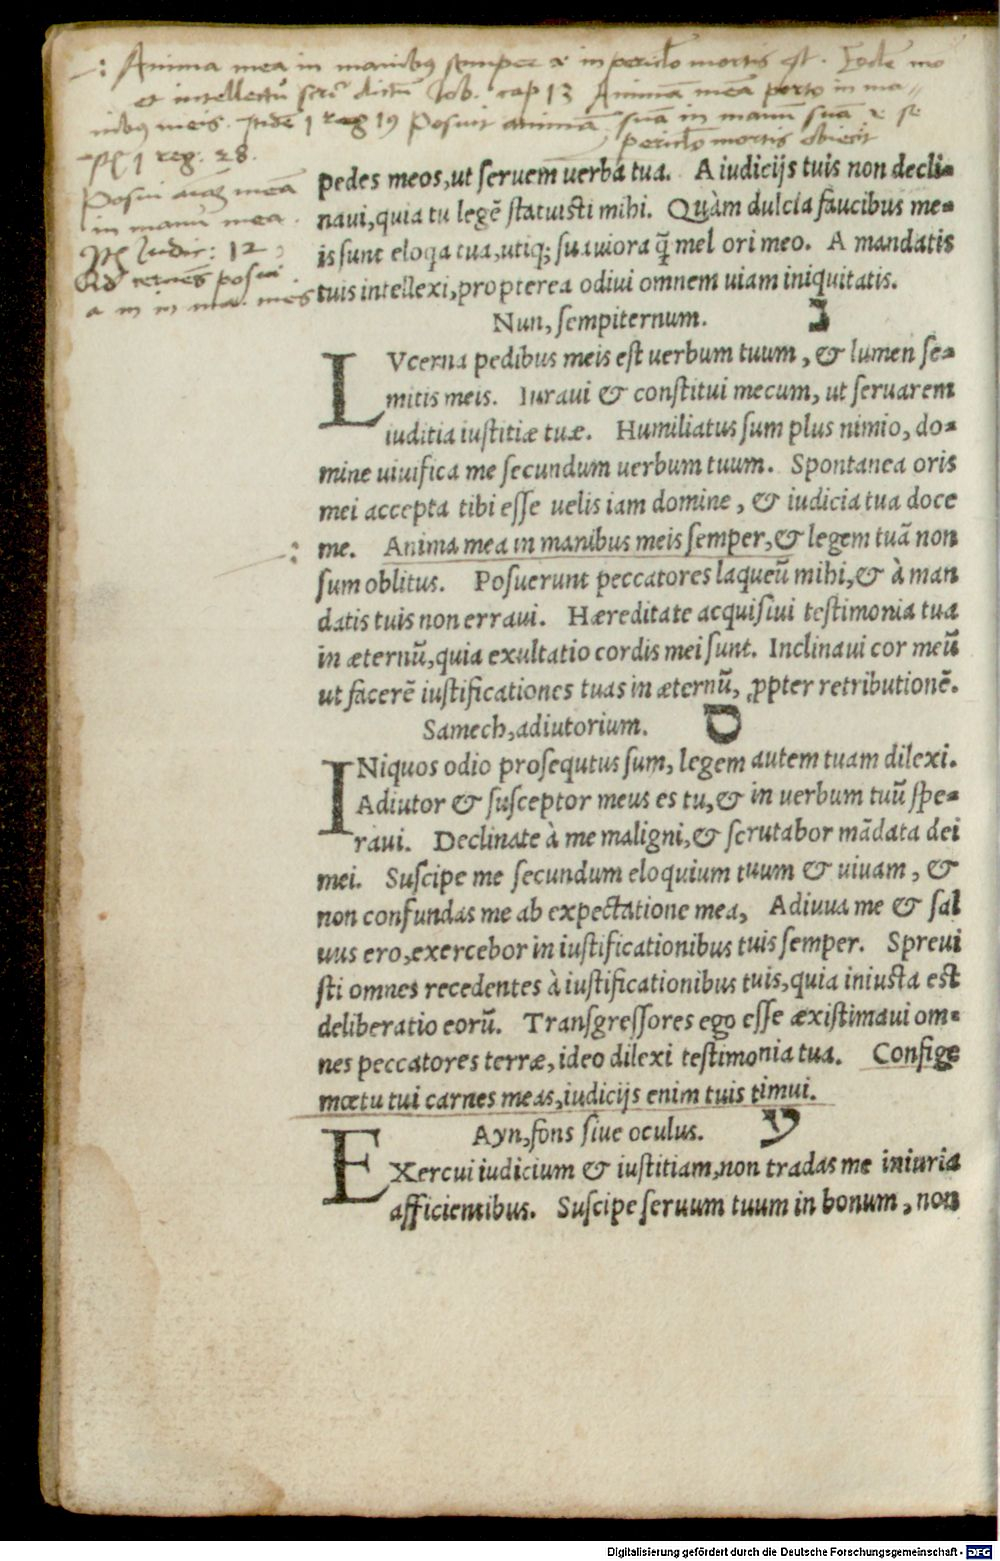 Anima mea in manibꝯ semper & in pericło mortis est. Eodē mo
et intellectū scrī dictū Iob. cap 13 Animā meā porto in ma„
nibꝯ meis. Itidē 1 reg 19 Posuit animā suā in manū suā & se
pericło mortis obiecit
1 reg. 28.
Posui meā
in manū mea.
Iudic: 12
posui
a m in ma. meis
pedes meos,ut seruem uerba tua. A iudicijs tuis non decli-
naui,quia tu legē statuisti mihi. Quàm dulcia faucibus me-
is sunt eloqa tua,utiq; suauiora q̃ mel ori meo. A mandatis
tuis intellexi,propterea odiui omnem uiam iniquitatis.
Nun, sempiternum. נ
LVcerna pedibus meis est uerbum tuum, & lumen se-
mitis meis. Iuraui & constitui mecum, ut seruarem
iuditia iustitiæ tuæ. Humiliatus sum plus nimio, do-
mine uiuifica me secundum uerbum tuum. Spontanea oris
mei accepta tibi esse uelis iam domine, & iudicia tua doce
me. Anima mea in manibus meis semper,& legem tuā non
sum oblitus. Posuerunt peccatores laqueū mihi,& à man
datis tuis non erraui. Hæreditate acquisiui testimonia tua
in æternū,quia exultatio cordis mei sunt. Inclinaui cor meū
ut facerē iustificationes tuas in æternū, ꝓpter retributionē.
Samech,adiutorium. ס
INiquos odio prosequtus sum, legem autem tuam dilexi.
Adiutor & susceptor meus es tu,& in uerbum tuū spe-
raui. Declinate à me maligni,& scrutabor mādata dei
mei. Suscipe me secundum eloquium tuum & uiuam, &
non confundas me ab expectatione mea, Adiuua me & sal
uus ero,exercebor in iustificationibus tuis semper. Spreui
sti omnes recedentes à iustificationibus tuis,quia iniusta est
deliberatio eorū. Transgressores ego esse æxistimaui om-
nes peccatores terræ,ideo dilexi testimonia tua. Confige
mœtu tui carnes meas,iudicijs enim tuis timui.
Ayn,fons siue oculus. ע
EXercui iudicium & iustitiam,non tradas me iniuria
afficientibus. Suscipe seruum tuum in bonum, non
Digitalisierung gefördert durch die Deutsche Forschungsgemeinschaft - DFG